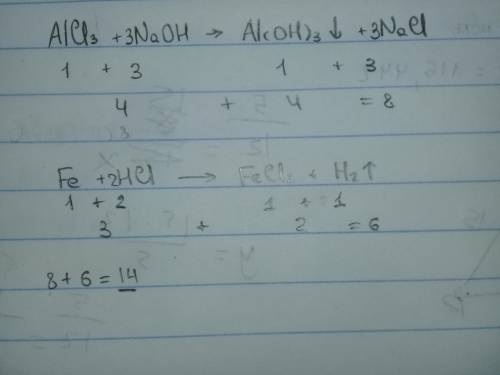 AlCl3 +3NaOH → Al(OH)3 ↓ +3NaCl
1 + 3 1 + 3
4 + 4 = 8
Fe +2HCl → FeCl2 + H2↑
1 + 2 1 + 1
3 + 2 = 6
8 + 6 = 14